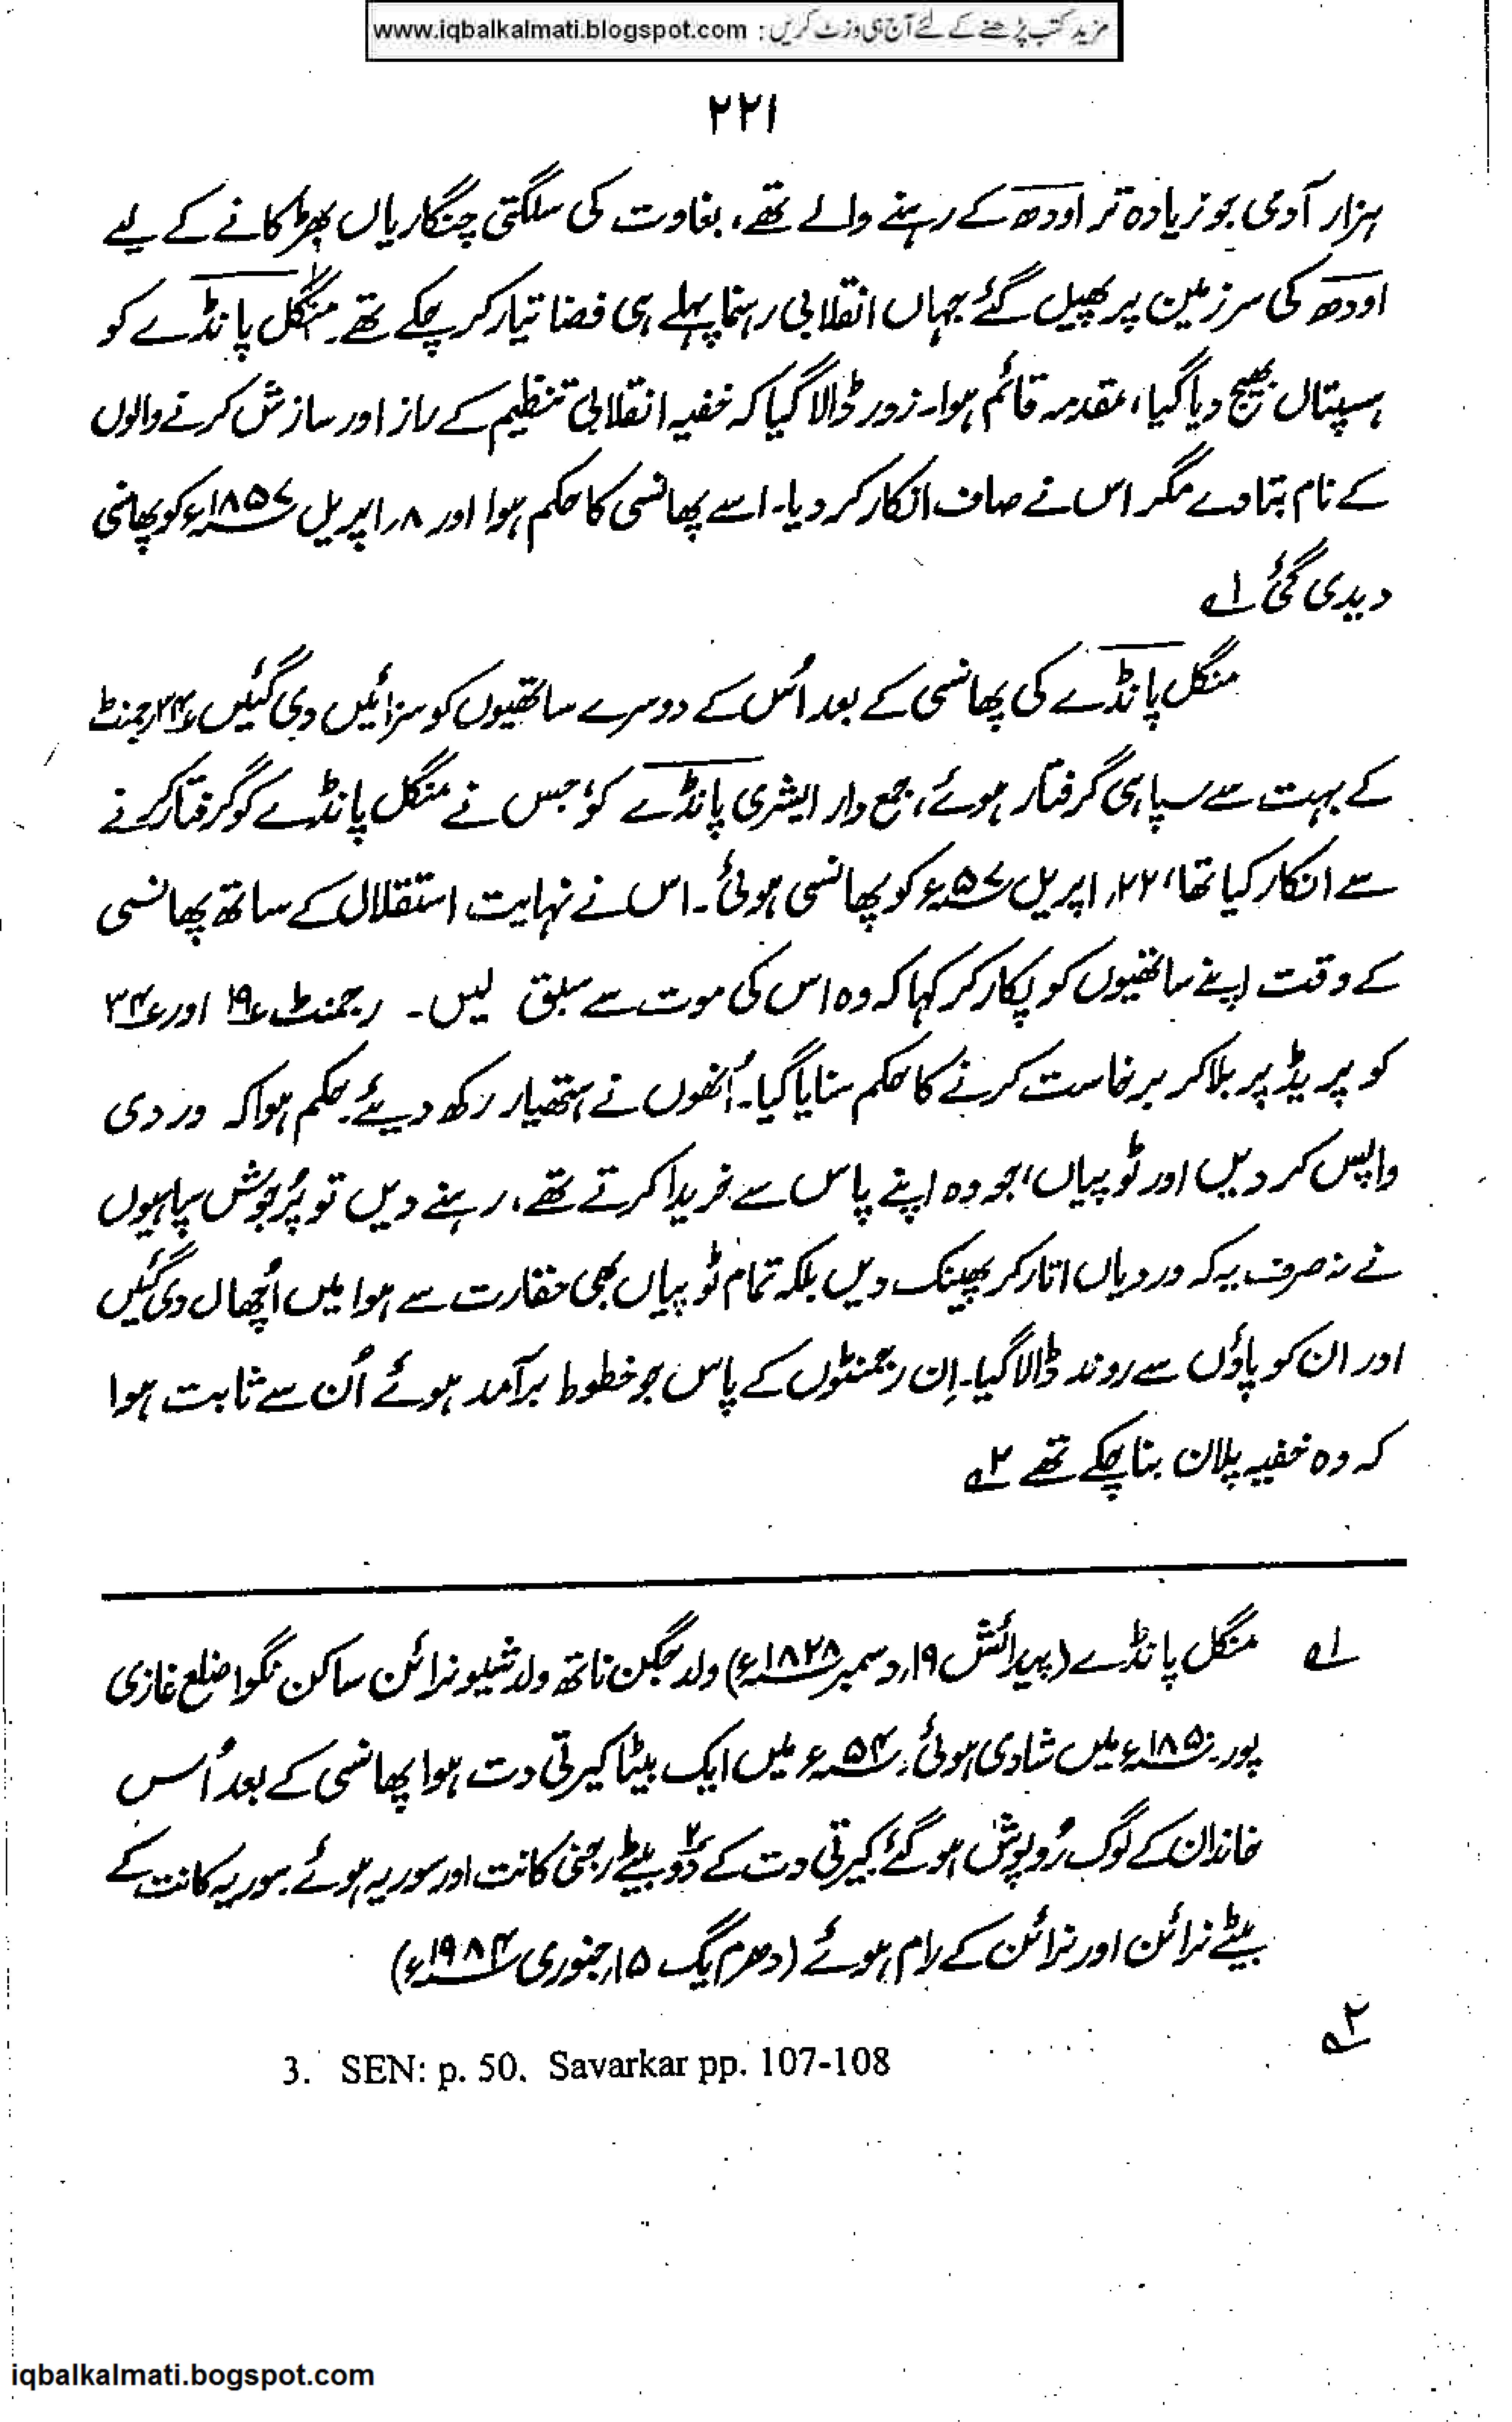 مزید کتب پڑھنے کے لئے آج ہی وزٹ کریں : www.iqbalkalmati.blogspot.com
۲۲۱
ہزار آدمی جو زیادہ تر اودھ کے رہنے والے تھے، بغاوت کی سلگتی چنگاریاں بھڑکانے کے لیے
اودھ کی سرزمین پر پھیل گئے جہاں انقلابی رہنما پہلے ہی فضا تیار کر چکے تھے۔ منگل پانڈے کو
ہسپتال بھیج دیا گیا، مقدمہ قائم ہوا۔ زور ڈالا گیا کہ خفیہ انقلابی تنظیم کے راز اور سازش کرنے والوں
کے نام بتا دے مگر اس نے صاف انکار کر دیا۔ اسے پھانسی کا حکم ہوا اور ۸؍ اپریل ۱۸۵۷ء کو پھانسی
دیدی گئی ۱؎
منگل پانڈے کی پھانسی کے بعد اُس کے دوسرے ساتھیوں کو سزائیں دی گئیں ۳۴ رجمنٹ
کے بہت سے سپاہی گرفتار ہوئے، جمع دار ایشری پانڈے کو، جس نے منگل پانڈے کو گرفتار کرنے
سے انکار کیا تھا، ۲۲؍ اپریل ۵۷ء کو پھانسی ہوئی۔ اس نے نہایت استقلال کے ساتھ پھانسی
کے وقت اپنے ساتھیوں کو پکار کر کہا کہ وہ اس کی موت سے سبق لیں۔ رجمنٹ ۱۹ اور ۳۴
کو پریڈ پر بلا کر برخاست کرنے کا حکم سنایا گیا۔ اُنھوں نے ہتھیار رکھ دیئے۔ حکم ہوا کہ وردی
واپس کر دیں اور ٹوپیاں، جو وہ اپنے پاس سے خریدا کرتے تھے، رہنے دیں تو پُرجوش سپاہیوں
نے نہ صرف یہ کہ وردیاں اتار کر پھینک دیں بلکہ تمام ٹوپیاں بھی حقارت سے ہوا میں اُچھال دی گئیں
اور ان کو پاؤں سے روند ڈالا گیا۔ اِن رجمنٹوں کے پاس جو خطوط برآمد ہوئے اُن سے ثابت ہوا
کہ وہ خفیہ پلان بنا چکے تھے ۲؎
۱؎ منگل پانڈے (پیدائش ۱۹؍ دسمبر ۱۸۲۸ء) ولد جگن ناتھ ولد شیو نرائن ساکن نگوا ضلع غازی
پور۔ ۱۸۵۰ء میں شادی ہوئی۔ ۵۴ء میں ایک بیٹا کیرتی دت ہوا پھانسی کے بعد اُس
خاندان کے لوگ رُوپوش ہو گئے۔ کیرتی دت کے دو ۲ بیٹے رجنی کانت اور سوریہ ہوئے۔ سوریہ کانت کے
بیٹے نرائن اور نرائن کے رام ہوئے (دھرم یگ ۱۵؍ جنوری ۱۹۸۴ء)
۲؎
3. SEN: p. 50. Savarkar pp. 107-108
iqbalkalmati.bogspot.com